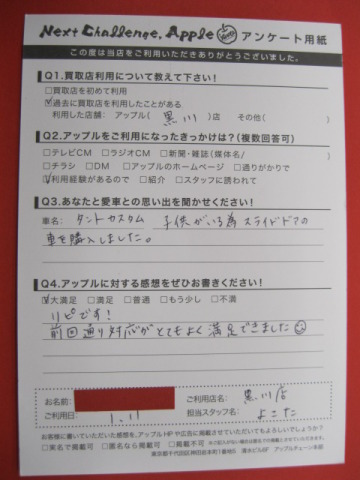 Next Challenge, Apple アンケート用紙
この度は当店をご利用いただきありがとうございました。
Q1.買取店利用について教えて下さい!
□買取店を初めて利用
☑過去に買取店を利用したことがある
利用した店舗: アップル( 黒川 )店 その他( )
Q2.アップルをご利用になったきっかけは?(複数回答可)
□テレビCM □ラジオCM □新聞・雑誌(媒体名/ )
□チラシ □DM □アップルのホームページ □通りがかりで
☑利用経験があるので □紹介 □スタッフに誘われて
Q3.あなたと愛車との思い出を聞かせください!
車名: タントカスタム 子供がいる為スライドドアの
車を購入しました。
Q4.アップルに対する感想をぜひお書きください!
☑大満足 □満足 □普通 □もう少し □不満
リピです!
前回通り対応がとてもよく満足できました
お名前:
ご利用店名: 黒川店
ご利用日: 1.11
担当スタッフ名: よこた
お客様に書いていただいた感想を、アップルHPや広告に掲載させていただいてもよろしいでしょうか?
□実名で掲載可 □匿名なら掲載可 □掲載不可 ※ご記入がない場合は匿名での掲載とさせていただきます。
東京都千代田区神田岩本町1番地5 清水ビル6F アップルチェーン本部